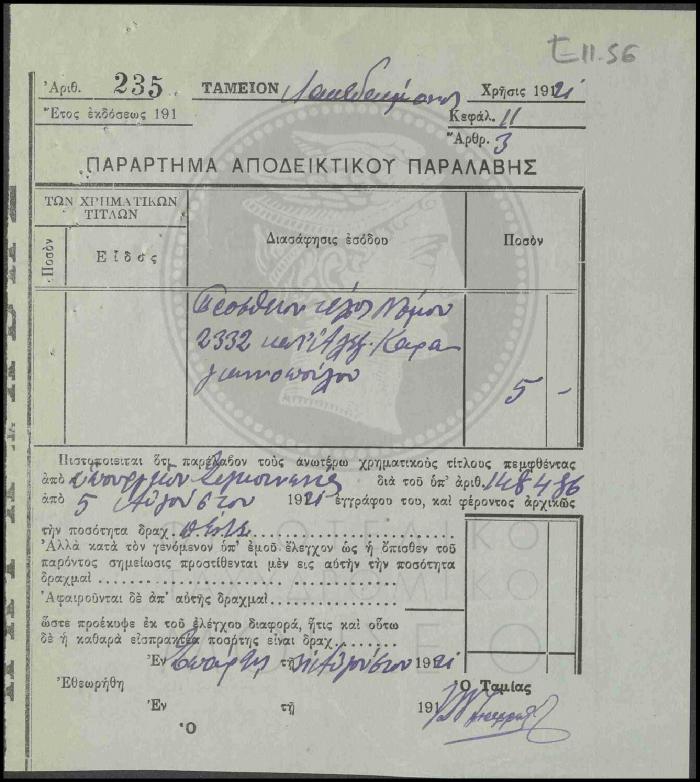 Ε-11.56
Ἀριθ. 235 ΤΑΜΕΙΟΝ Λακεδαίμονος Χρῆσις 1921
Ἔτος ἐκδόσεως 191 Κεφάλ. 11
Ἄρθρ. 3
ΠΑΡΑΡΤΗΜΑ ΑΠΟΔΕΙΚΤΙΚΟΥ ΠΑΡΑΛΑΒΗΣ
ΤΩΝ ΧΡΗΜΑΤΙΚΩΝ
ΤΙΤΛΩΝ
Ποσὸν Εἶδος Διασάφησις ἐσόδου Ποσὸν
Πρόσθετον τέλος Νόμου
2332 κατ' Ἀλεξ. Καρα
γιαννοπούλου 5 -
Πιστοποιεῖται ὅτι παρέλαβον τοὺς ἀνωτέρω χρηματικοὺς τίτλους πεμφθέντας
ἀπὸ Ὑπουργεῖον διὰ τοῦ ὑπ' ἀριθ. 148486
ἀπὸ 5 Αὐγούστου 1921 ἐγγράφου του, καὶ φέροντος ἀρχικῶς
τὴν ποσότητα δραχ. πέντε
Ἀλλὰ κατὰ τὸν γενόμενον ὑπ' ἐμοῦ ἔλεγχον ὡς ἡ ὄπισθεν τοῦ
παρόντος σημείωσις προστίθενται μὲν εις αὐτὴν τὴν ποσότητα
δραχμαὶ
Ἀφαιροῦνται δὲ ἀπ' αὐτῆς δραχμαὶ
ὥστε προέκυψε ἐκ τοῦ ἐλέγχου διαφορά, ἥτις καὶ οὕτω
δὲ ἡ καθαρὰ εἰσπρακτέα ποσότης εἶναι δραχ.
Ἐν Σπάρτῃ τῇ Αὐγούστου 1921
Ἐθεωρήθη Ὁ Ταμίας
Ἐν τῇ 191
Ὁ